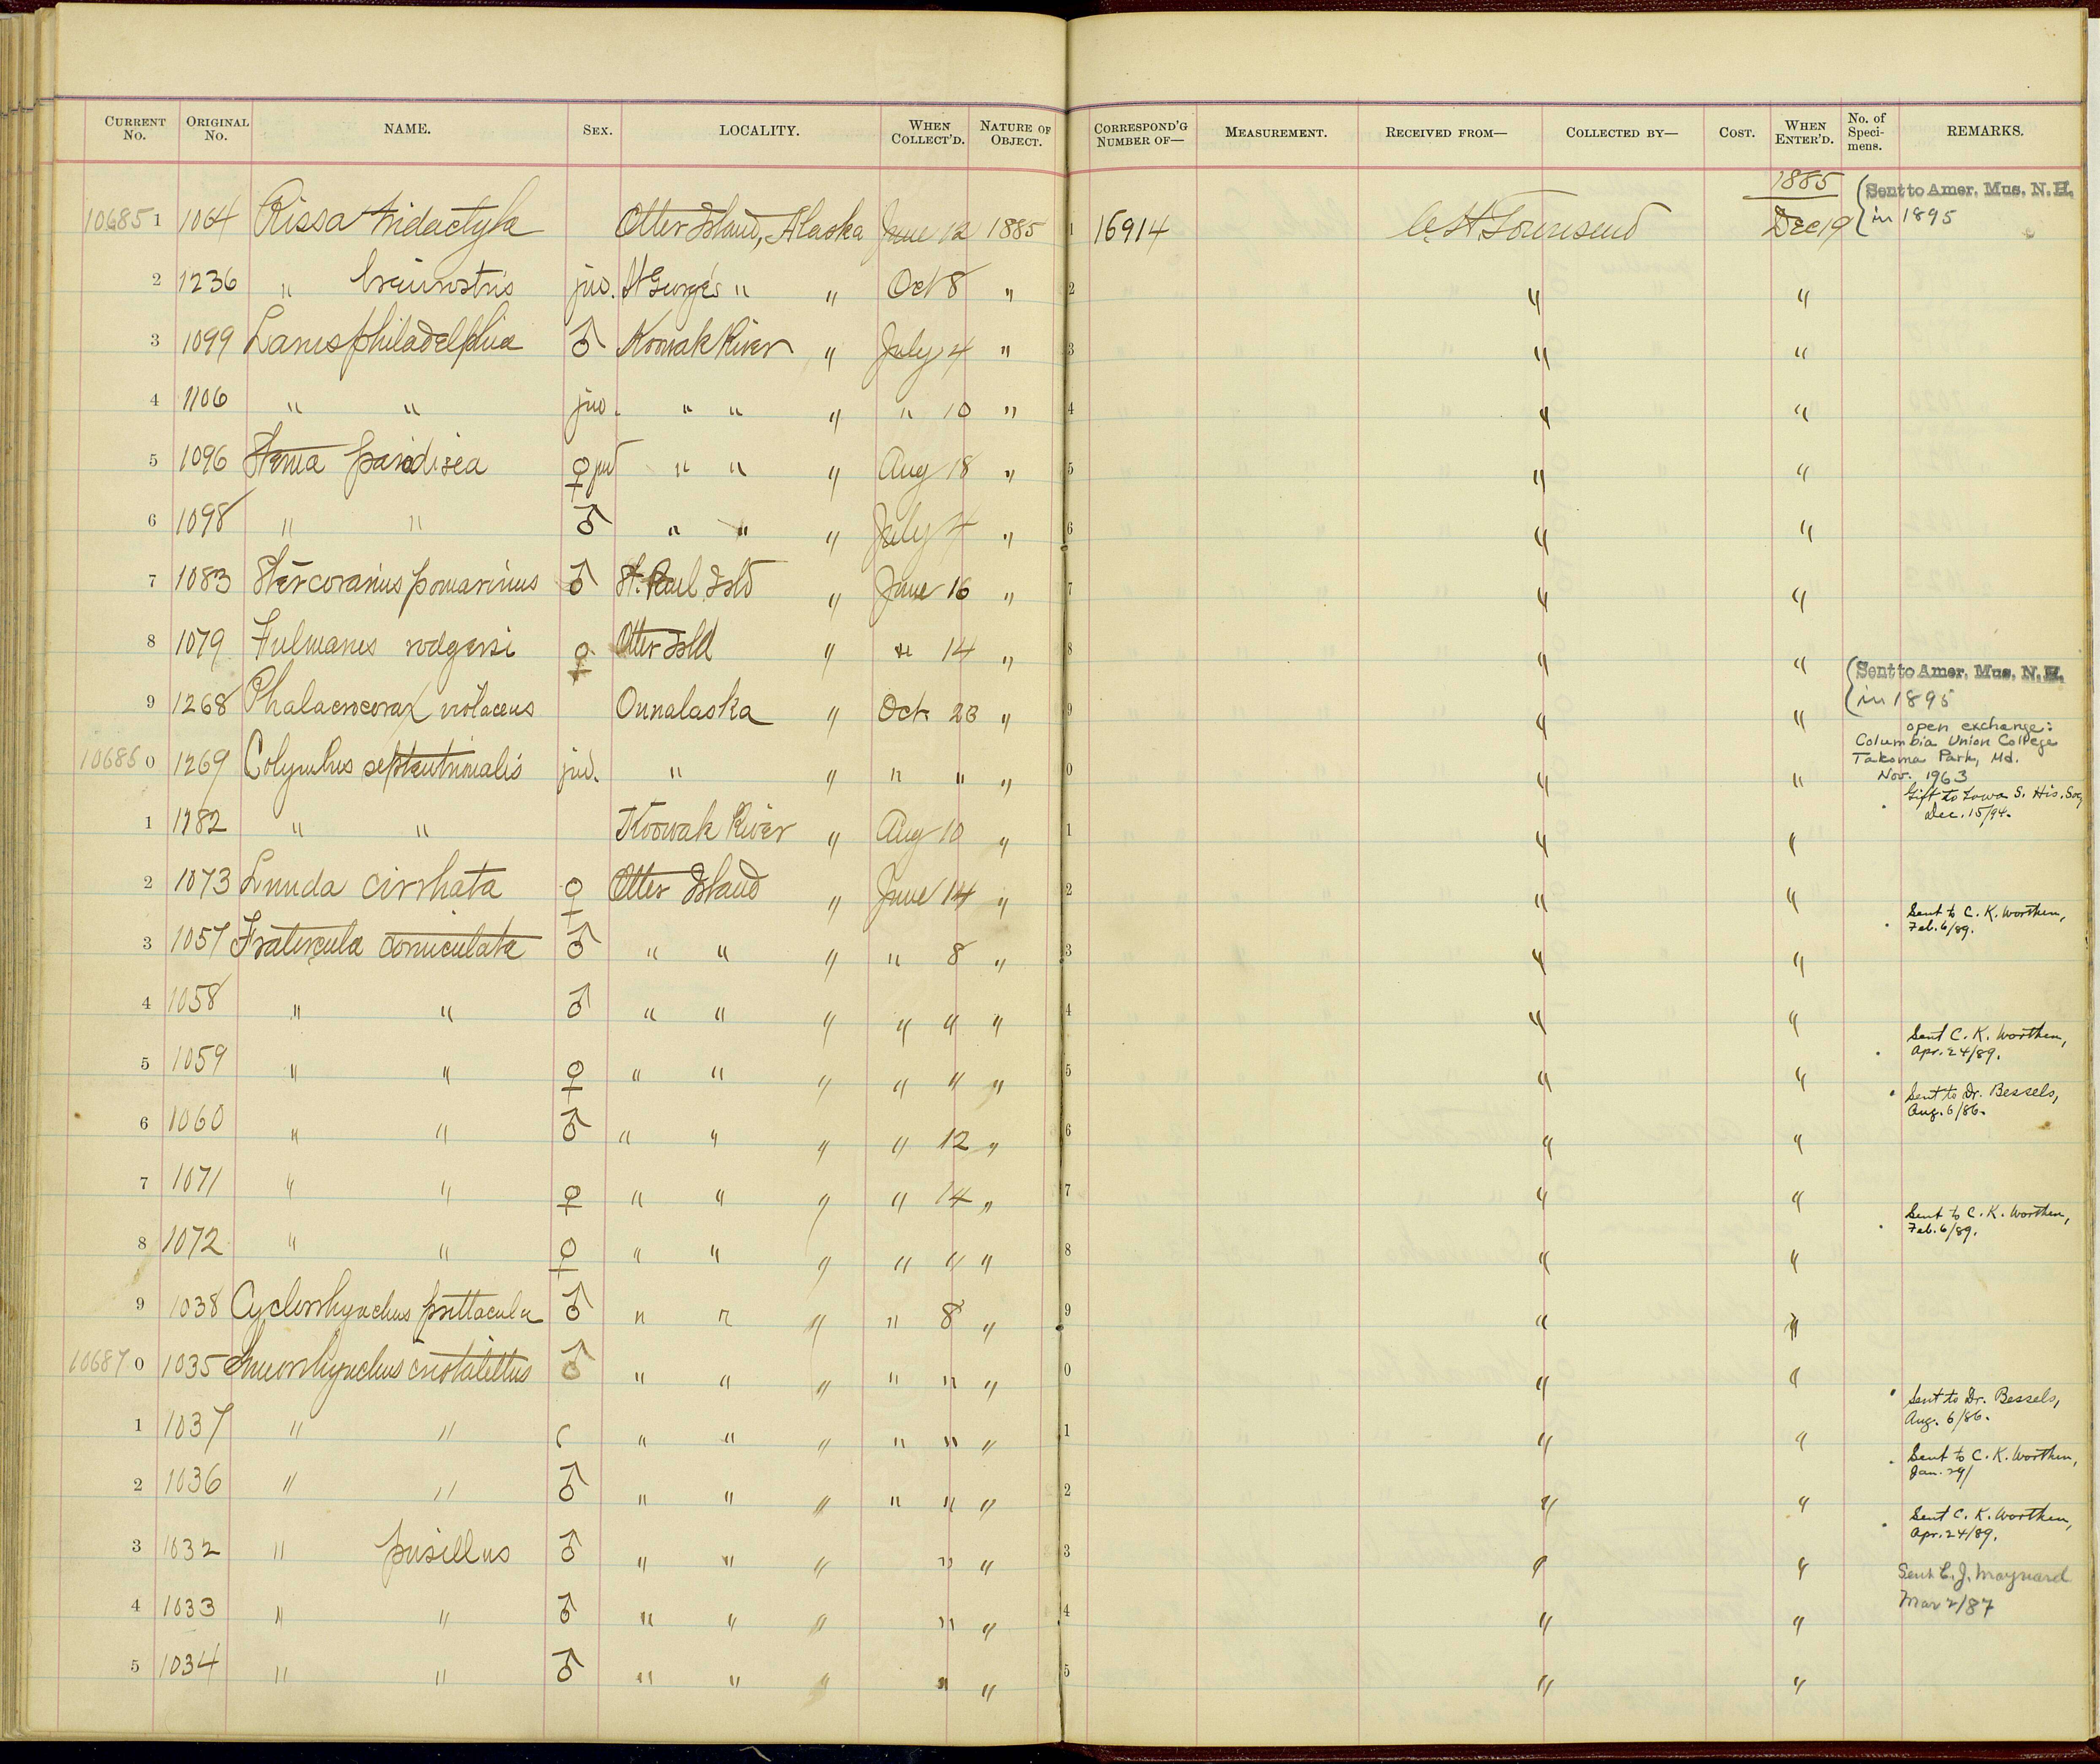 CURRENT No. ORIGINAL No. NAME. SEX. LOCALITY. WHEN COLLECT'D. NATURE OF OBJECT. CORRESPOND'G NUMBER OF— MEASUREMENT. RECEIVED FROM— COLLECTED BY— COST. WHEN ENTER'D. No. of Speci-mens. REMARKS.
1885 Sent to Amer. Mus. N.H.
10685 1 1064 Rissa tridactyla Otter Island, Alaska June 12 1885 1 16914 C.H. Townsend Dec 19 in 1895
2 1236 " brevirostris juv. St George's " " Oct 8 " 2 " "
3 1099 Larus philadelphia ♂ Kowak River " July 4 " 3 " "
4 1106 " " juv. " " " " 10 " 4 " "
5 1096 Sterna paradisea ♀ juv " " " Aug 18 " 5 " "
6 1098 " " ♂ " " " July 4 " 6 " "
7 1083 Stercorarius pomarinus ♂ St. Paul Isld " June 16 " 7 " "
8 1079 Fulmarus rodgersi ♀ Otter Isld " " 14 " 8 " "
Sent to Amer. Mus. N.H.
9 1268 Phalacrocorax violaceus Ounalaska " Oct 23 " 9 " " in 1895
open exchange:
Columbia Union College
10686 0 1269 Colymbus septentrionalis juv. " " " " " 0 " " Takoma Park, Md.
Nov. 1963
Gift to Iowa S. His. Soc,
Dec. 15/94.
1 1182 " " Kowak River " Aug 10 " 1 " "
2 1073 Lunda cirrhata ♀ Otter Island " June 14 " 2 " "
Sent to C. K. Worthen,
Feb. 6/89.
3 1057 Fratercula corniculata ♂ " " " " 8 " 3 " "
4 1058 " " ♂ " " " " " " 4 " "
Sent C. K. Worthen,
Apr. 24/89.
5 1059 " " ♀ " " " " " " 5 " "
Sent to Dr. Bessels,
Aug. 6/86.
6 1060 " " ♂ " " " " 12 " 6 " "
7 1071 " " ♀ " " " " 14 " 7 " "
Sent to C. K. Worthen,
Feb. 6/89.
8 1072 " " ♀ " " " " " " 8 " "
9 1038 Cyclorrhynchus psittacula ♂ " " " " 8 " 9 " "
10687 0 1035 Simorhynchus cristatellus ♂ " " " " " " 0 " "
Sent to Dr. Bessels,
Aug. 6/86.
1 1037 " " " " " " " " 1 " "
Sent to C. K. Worthen,
Jan. 29/
2 1036 " " ♂ " " " " " " 2 " "
Sent C. K. Worthen,
Apr. 24/89.
3 1032 " pusillus ♂ " " " " " 3 " "
Sent C. J. Maynard
Mar 2/87
4 1033 " " ♂ " " " " " 4 " "
5 1034 " " ♂ " " " " " 5 " "